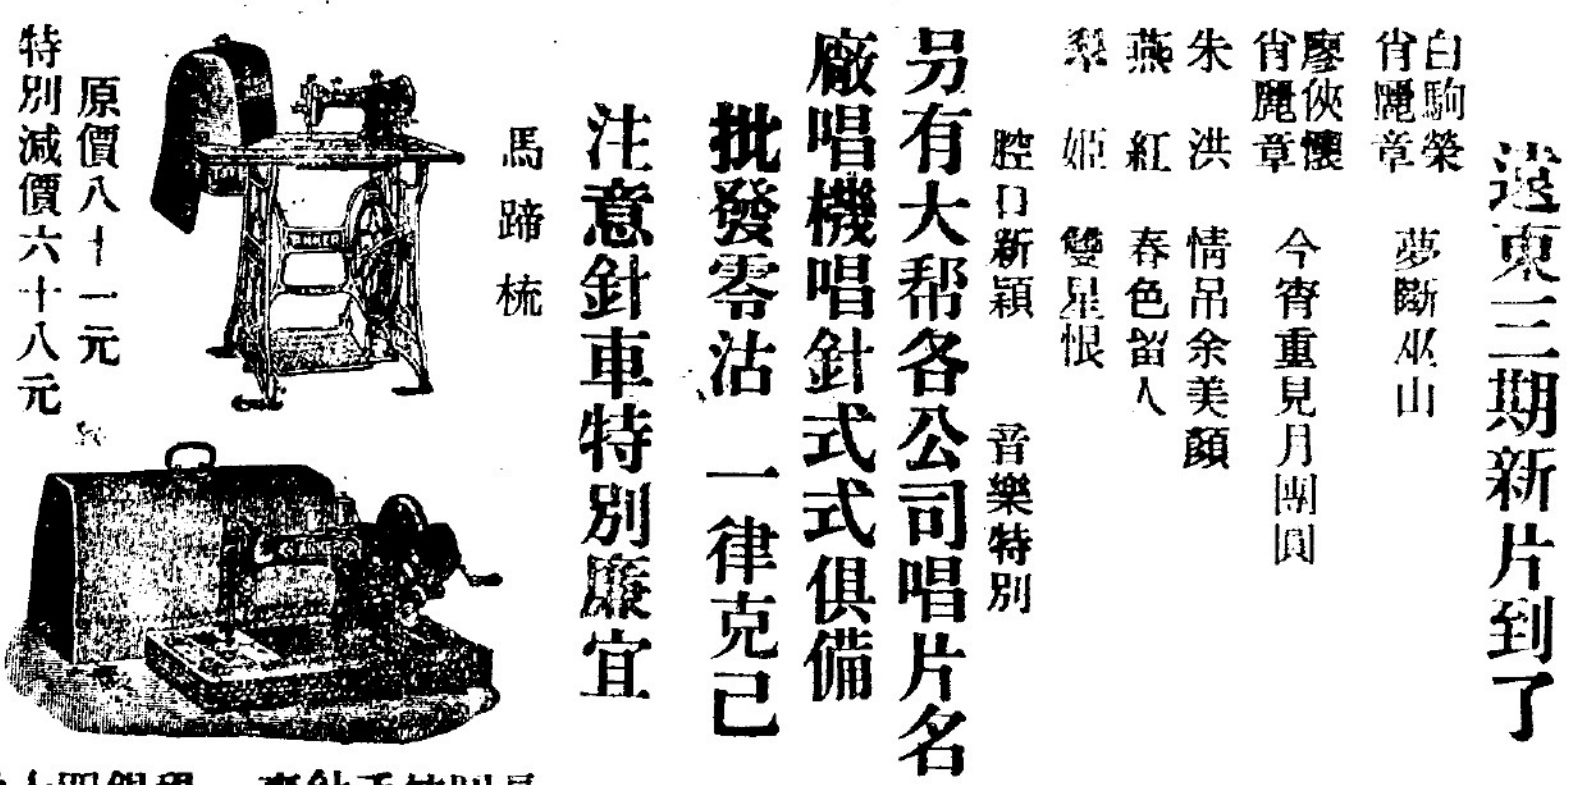 遠東三期新片到了
白駒榮
肖麗章
夢斷巫山
廖俠懷
肖麗章
今宵重見月團圓
朱洪
情吊余美顏
燕紅
春色留人
梨姬
雙星恨
腔口新穎
音樂特別
另有大帮各公司唱片名
廠唱機唱針式式俱備
批發零沽
一律克己
注意針車特別廉宜
馬蹄梳
原價八十一元
特別減價六十八元